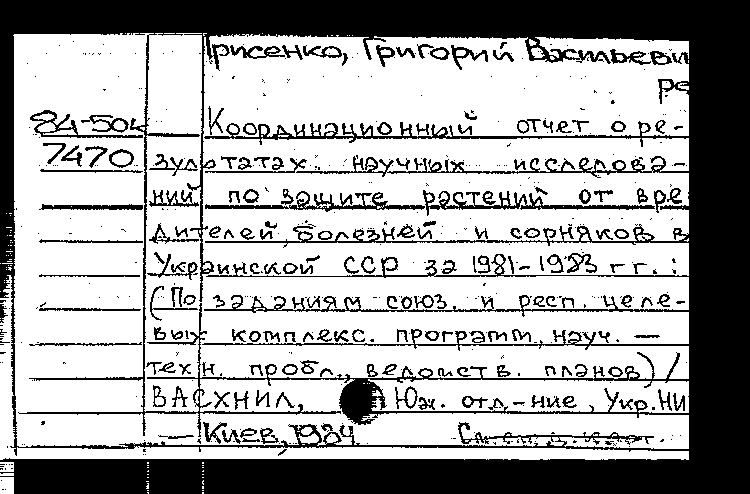 Грисенко, Григорий Васильеви
ре
84-50к Координационный отчет о ре-
7470 зультатах научных исследова-
ний по защите растений от вре
дителей, болезней и сорняков в
Украинской ССР за 1981-1983 гг. :
(По заданиям союз. и респ. целе-
вых комплекс. программ, науч. —
техн. пробл., ведомств. планов) /
ВАСХНИЛ, Юж. отд-ние, Укр. НИ
— Киев, 1984